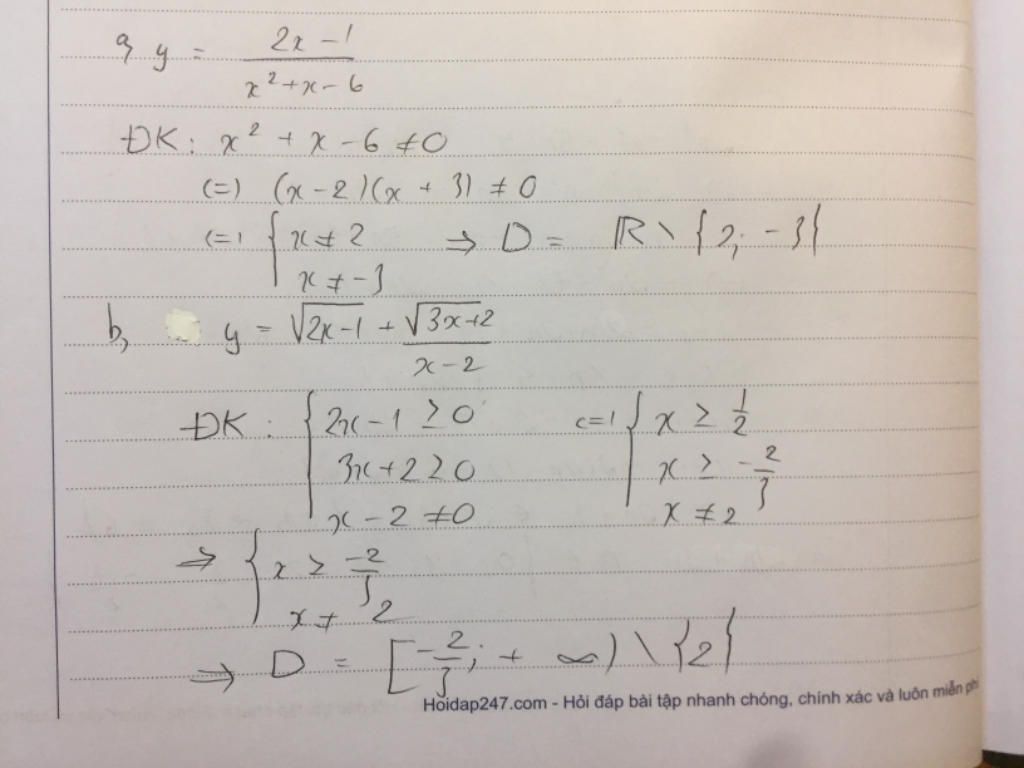 a, y = \frac{2x-1}{x^2+x-6}
ĐK: x^2 + x - 6 ≠ 0
(=) (x-2)(x+3) ≠ 0
(=) { x ≠ 2 ⇒ D = ℝ \ {2; -3}
x ≠ -3
b, y = \sqrt{2x-1} + \frac{\sqrt{3x+2}}{x-2}
ĐK: { 2x-1 ≥ 0 (=) { x ≥ \frac{1}{2}
3x+2 ≥ 0 x ≥ -\frac{2}{3}
x-2 ≠ 0 x ≠ 2
⇒ { x ≥ \frac{-2}{3}
x ≠ 2
⇒ D = [-\frac{2}{3}; +∞) \ {2}
Hoidap247.com - Hỏi đáp bài tập nhanh chóng, chính xác và luôn miễn phí